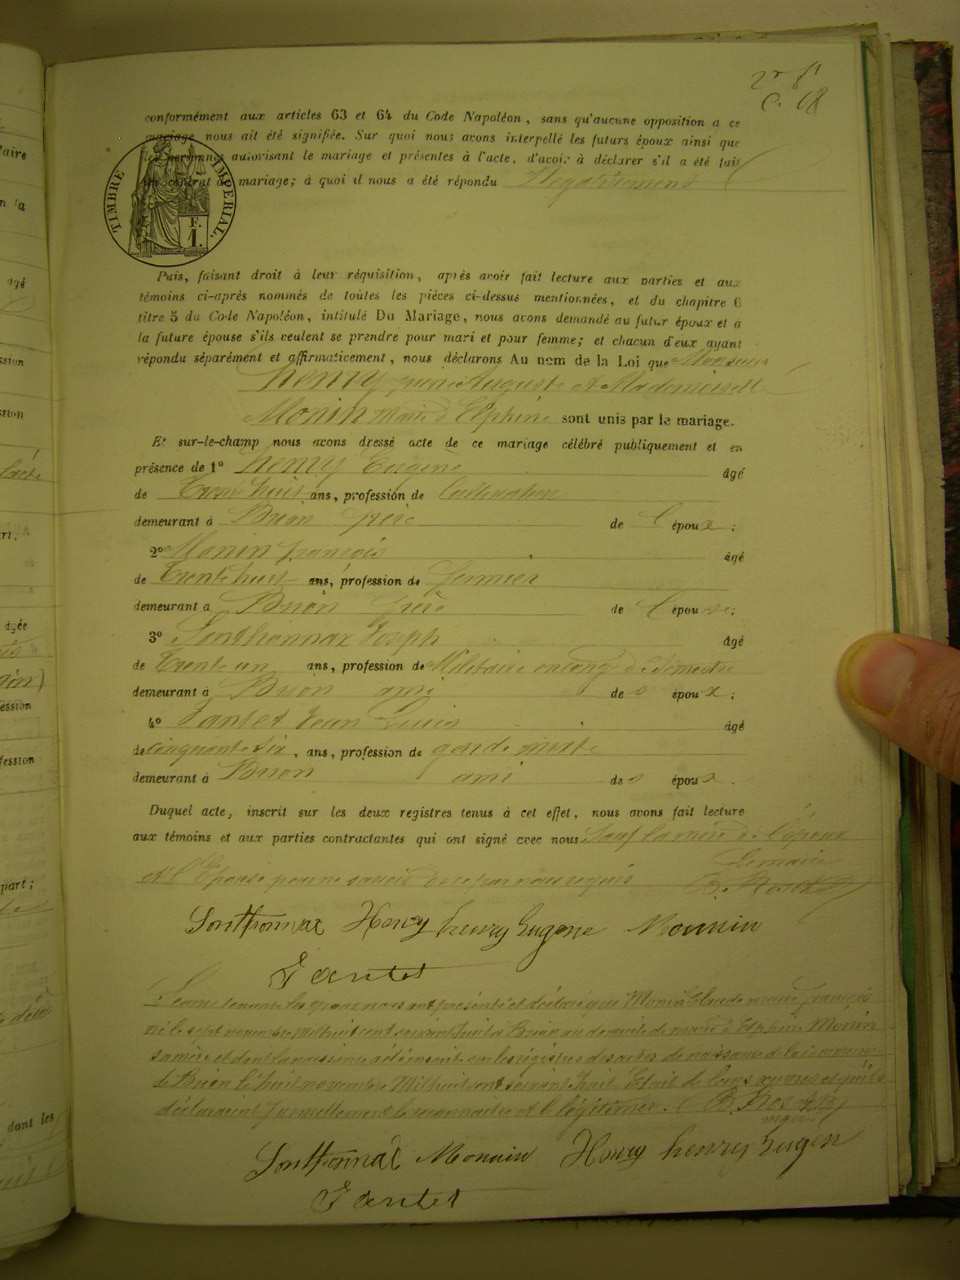 2 r 81
C. 18
conformément aux articles 63 et 64 du Code Napoléon, sans qu'aucune opposition a ce
mariage nous ait été signifiée. Sur quoi nous avons interpellé les futurs époux ainsi que
les personnes autorisant le mariage et présentes à l'acte, d'avoir à déclarer s'il a été fait
un contrat de mariage; à quoi il nous a été répondu Négativement
TIMBRE IMPERIAL
F. 1.
Puis, faisant droit à leur réquisition, après avoir fait lecture aux parties et aux
témoins ci-après nommés de toutes les pièces ci-dessus mentionnées, et du chapitre 6
titre 5 du Code Napoléon, intitulé Du Mariage, nous avons demandé au futur époux et a
la future épouse s'ils veulent se prendre pour mari et pour femme; et chacun d'eux ayant
répondu séparément et affirmativement, nous déclarons Au nom de la Loi que Monsieur
Henry Auguste et Mademoiselle
Monin Marie Delphine sont unis par le mariage.
Et sur-le-champ nous avons dressé acte de ce mariage célébré publiquement et en
présence de 1° Henry Eugène âgé
de Trente huit ans, profession de Cultivateur
demeurant à Brion frère de l'époux;
2° Monin François âgé
de Trente huit ans, profession de fermier
demeurant a Brion frère de l'épouse;
3° Sonthonnax Joseph âgé
de Trente un ans, profession de Militaire en congé de semestre
demeurant à Brion ami des époux;
4° Tantet Jean Louis âgé
de cinquante six, ans, profession de garde mixte
demeurant à Brion ami des époux.
Duquel acte, inscrit sur les deux registres tenus à cet effet, nous avons fait lecture
aux témoins et aux parties contractantes qui ont signé avec nous Sauf la mère de l'époux
et l'Epouse pour ne savoir de ce par nous requis Le maire
Sonthonnax Henry henry Eugene Mounin
Tantet
né le sept novembre mil huit cent soixante huit à Brion au domicile de marie Delphine Monin
sa mère et dont la naissance a été inscrite sur les registres des actes de naissance de la commune
de Brion le huit novembre Mil huit cent soixante huit Etait de leurs œuvres et qu'ils
déclaraient formellement le reconnaitre et le légitimer.
Sonthonnax Mounin Henry henry Eugen
Tantet